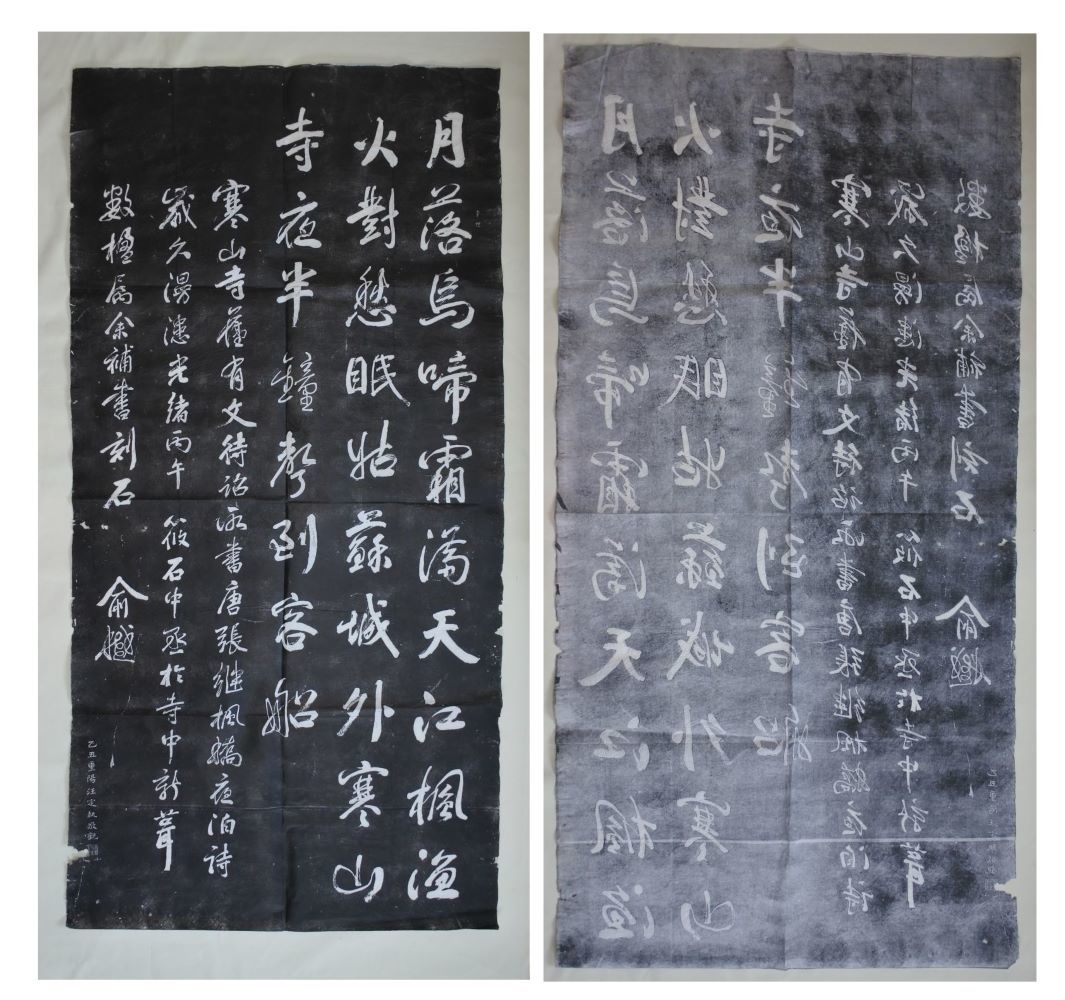 月落烏啼霜滿天江楓漁
火對愁眠姑蘇城外寒山
寺夜半鐘聲到客船
寒山寺舊有文待詔所書唐張繼楓橋夜泊詩
歲久漫漶光緒丙午 筱石中丞於寺中新葺
數楹屬余補書刻石 俞樾
乙丑重陽汪定執敬觀
月落烏啼霜滿天江楓漁
火對愁眠姑蘇城外寒山
寺夜半鐘聲到客船
寒山寺舊有文待詔所書唐張繼楓橋夜泊詩
歲久漫漶光緒丙午 筱石中丞於寺中新葺
數楹屬余補書刻石 俞樾